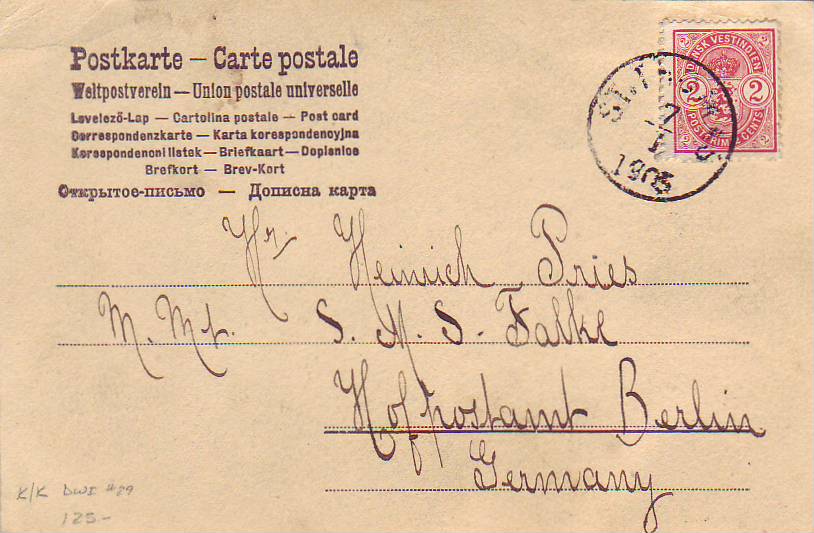 Postkarte — Carte postale
Weltpostverein — Union postale universelle
Levelező-Lap — Cartolina postale — Post card
Correspondenzkarte — Karta korespondencyjna
Korespondencni listek — Briefkaart — Dopisnice
Brefkort — Brev-Kort
Открытое-письмо — Дописна карта
DANSK VESTINDIEN
2 2
POSTFRIM. CENTS
ST. THOMAS
7
1
1905
Hr. Heinich Pries
M. Mt. S. M. S. Falke
Hofpostamt Berlin
Germany
K/K DWI #29
125-